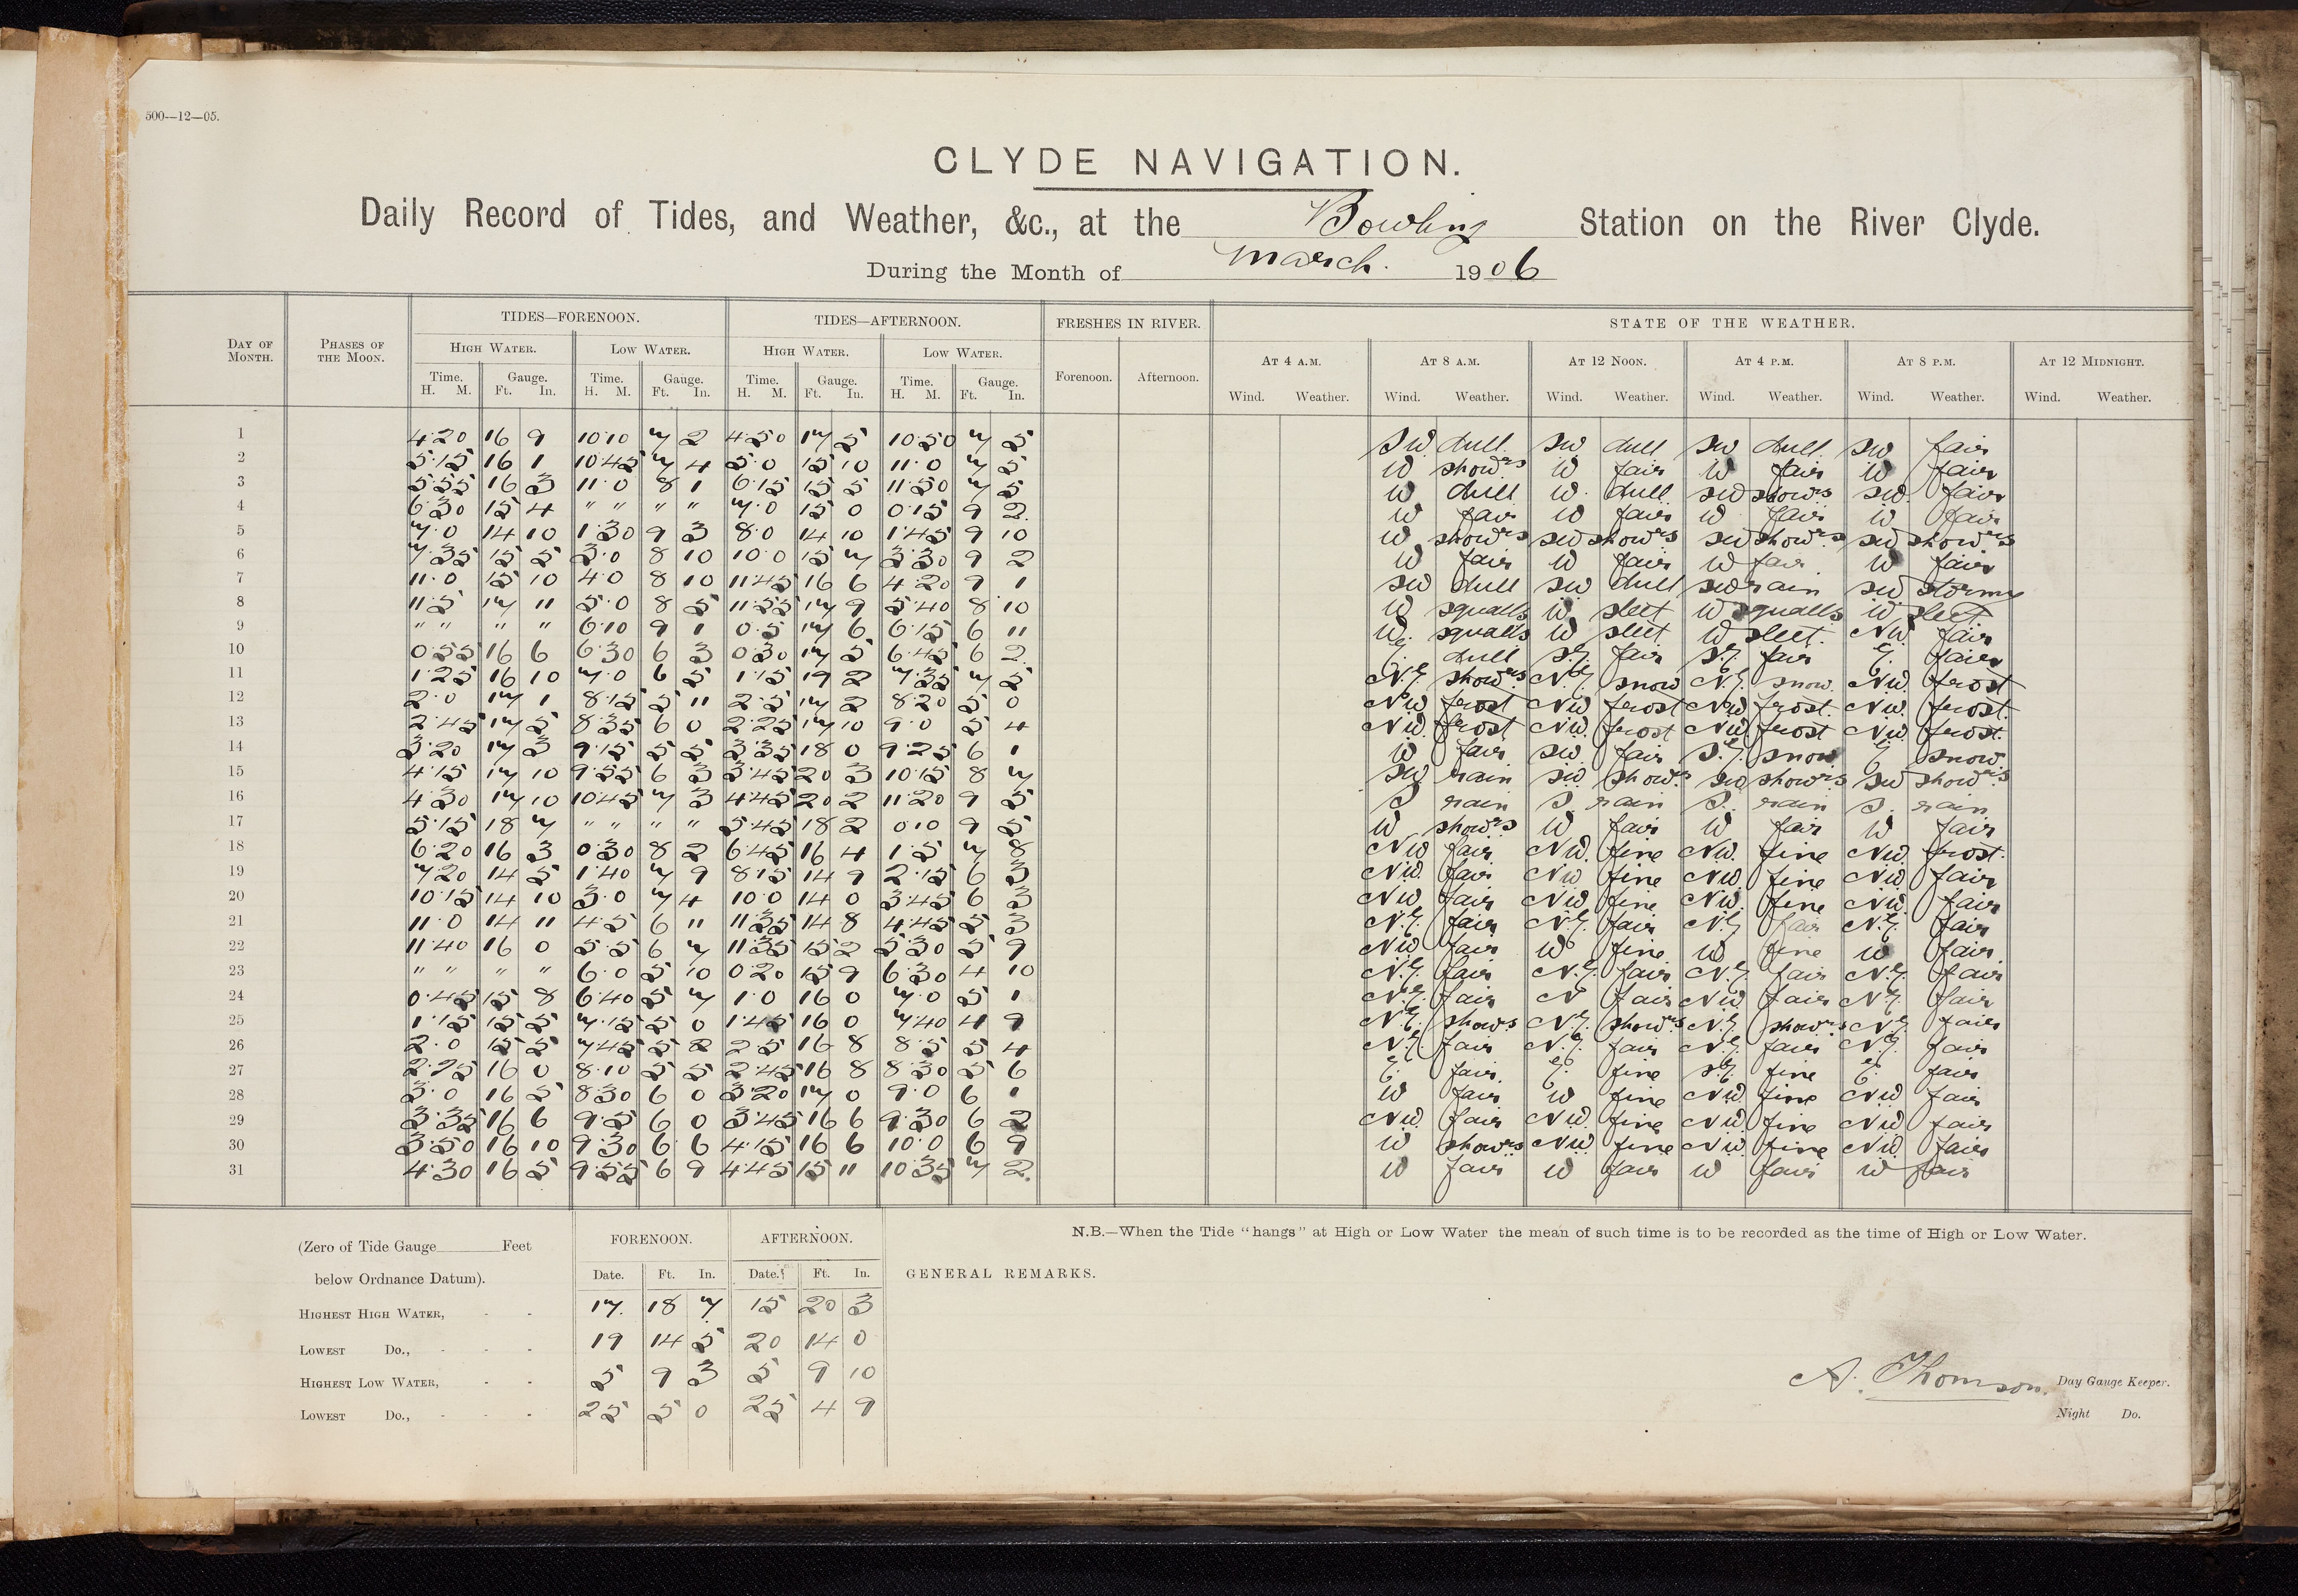 500—12—05.
CLYDE NAVIGATION.
Daily Record of Tides, and Weather, &c., at the Bowling Station on the River Clyde.
During the Month of March. 1906
TIDES—FORENOON. TIDES—AFTERNOON. FRESHES IN RIVER. STATE OF THE WEATHER.
DAY OF MONTH. PHASES OF THE MOON. HIGH WATER. LOW WATER. HIGH WATER. LOW WATER. Forenoon. Afternoon. AT 4 A.M. AT 8 A.M. AT 12 NOON. AT 4 P.M. AT 8 P.M. AT 12 MIDNIGHT.
Time. Gauge. Time. Gauge. Time. Gauge. Time. Gauge.
H. M. Ft. In. H. M. Ft. In. H. M. Ft. In. H. M. Ft. In. Wind. Weather. Wind. Weather. Wind. Weather. Wind. Weather. Wind. Weather. Wind. Weather.
1 4·20 16 9 10·10 7 2 4·50 17 5 10·50 7 5 SW dull SW dull SW dull SW fair
2 5·15 16 1 10·45 7 4 5·0 15 10 11·0 7 5 W showrs W fair W fair W fair
3 5·55 16 3 11·0 8 1 6·15 15 5 11·50 7 5 W dull W. dull SW showrs SW. fair
4 6·30 15 4 " " " " 7·0 15 0 0·15 9 2 W fair W fair W fair W fair
5 7·0 14 10 1·30 9 3 8·0 14 10 1·45 9 10 W showrs SW showrs SW showrs SW showrs
6 7·35 15 5 3·0 8 10 10·0 15 7 3·30 9 2 W fair W fair W fair W fair
7 11·0 15 10 4·0 8 10 11·45 16 6 4·20 9 1 SW dull SW dull SW rain SW stormy
8 11·5 17 11 5·0 8 5 11·55 17 9 5·40 8 10 W squalls W sleet W squalls W sleet
9 " " " " 6·10 9 1 0·5 17 6 6·15 6 11 W. squalls W sleet W sleet. NW fair
10 0·55 16 6 6·30 6 3 0·30 17 5 6·45 6 2 E. dull S.E. fair S.E. fair E. fair
11 1·25 16 10 7·0 6 5 1·15 19 2 7·35 7 5 N.E. showrs N.E. snow N.E. snow. NW. frost
12 2·0 17 1 8·15 5 11 2·5 17 2 8·20 5 0 NW frost NW frost NW frost. NW. frost.
13 2·45 17 5 8·35 6 0 2·25 17 10 9·0 5 4 NW. frost NW. frost NW frost NW frost.
14 3·20 17 3 9·15 5 5 3·35 18 0 9·25 6 1 W fair SW. fair S.E. snow E snow
15 4·15 17 10 9·55 6 3 3·45 20 3 10·15 8 7 SW rain SW. showrs SW showrs SW showrs
16 4·30 17 10 10·45 7 3 4·45 20 2 11·20 9 5 S rain S. rain S. rain S. rain
17 5·15 18 7 " " " " 5·45 18 2 0·10 9 5 W showrs W fair W fair W fair
18 6·20 16 3 0·30 8 2 6·45 16 4 1·5 7 8 NW fair NW. fine NW. fine NW. frost.
19 7·20 14 5 1·40 7 9 8·15 14 9 2·15 6 3 NW. fair NW fine NW. fine NW. fair
20 10·15 14 10 3·0 7 4 10·0 14 0 3·45 6 3 NW fair NW. fine NW. fine NW. fair
21 11·0 14 11 4·5 6 11 11·35 14 8 4·45 5 3 N.E. fair N.E. fair N.E. fair N.E. fair
22 11·40 16 0 5·5 6 7 11·35 15 2 5·30 5 9 NW. fair W fine W fine W fair
23 " " " " 6·0 5 10 0·20 15 9 6·30 4 10 N.E. fair N.E. fair N.E. fair N.E. fair
24 0·45 15 8 6·40 5 7 1·0 16 0 7·0 5 1 N.E. fair N fair NW. fair N.E. fair
25 1·15 15 5 7·15 5 0 1·45 16 0 7·40 4 9 N.E. showrs N.E. showrs N.E. showrs N.E. fair
26 2·0 15 5 7·45 5 2 2·5 16 8 8·5 5 4 N.E. fair N.E. fair N.E. fair N.E. fair
27 2·25 16 0 8·10 5 5 2·45 16 8 8·30 5 6 E. fair. E. fine S.E. fine E. fair
28 3·0 16 5 8·30 6 0 3·20 17 0 9·0 6 1 W fair W fine NW. fine NW. fair
29 3·35 16 6 9·5 6 0 3·45 16 6 9·30 6 2 NW. fair NW. fine NW. fine NW. fair
30 3·50 16 10 9·30 6 6 4·15 16 6 10·0 6 9 W showrs NW. fine NW. fine NW. fair
31 4·30 16 5 9·55 6 9 4·45 15 11 10·35 7 2. W fair W fair W fair W fair
(Zero of Tide Gauge Feet below Ordnance Datum).
FORENOON. AFTERNOON.
N.B.—When the Tide "hangs" at High or Low Water the mean of such time is to be recorded as the time of High or Low Water.
Date. Ft. In. Date. Ft. In. GENERAL REMARKS.
HIGHEST HIGH WATER, - - 17. 18 7 15 20 3
LOWEST Do., - - - 19 14 5 20 14 0
HIGHEST LOW WATER, - - 5 9 3 5 9 10
LOWEST Do., - - - 25 5 0 25 4 9
A. Thomson. Day Gauge Keeper.
Night Do.